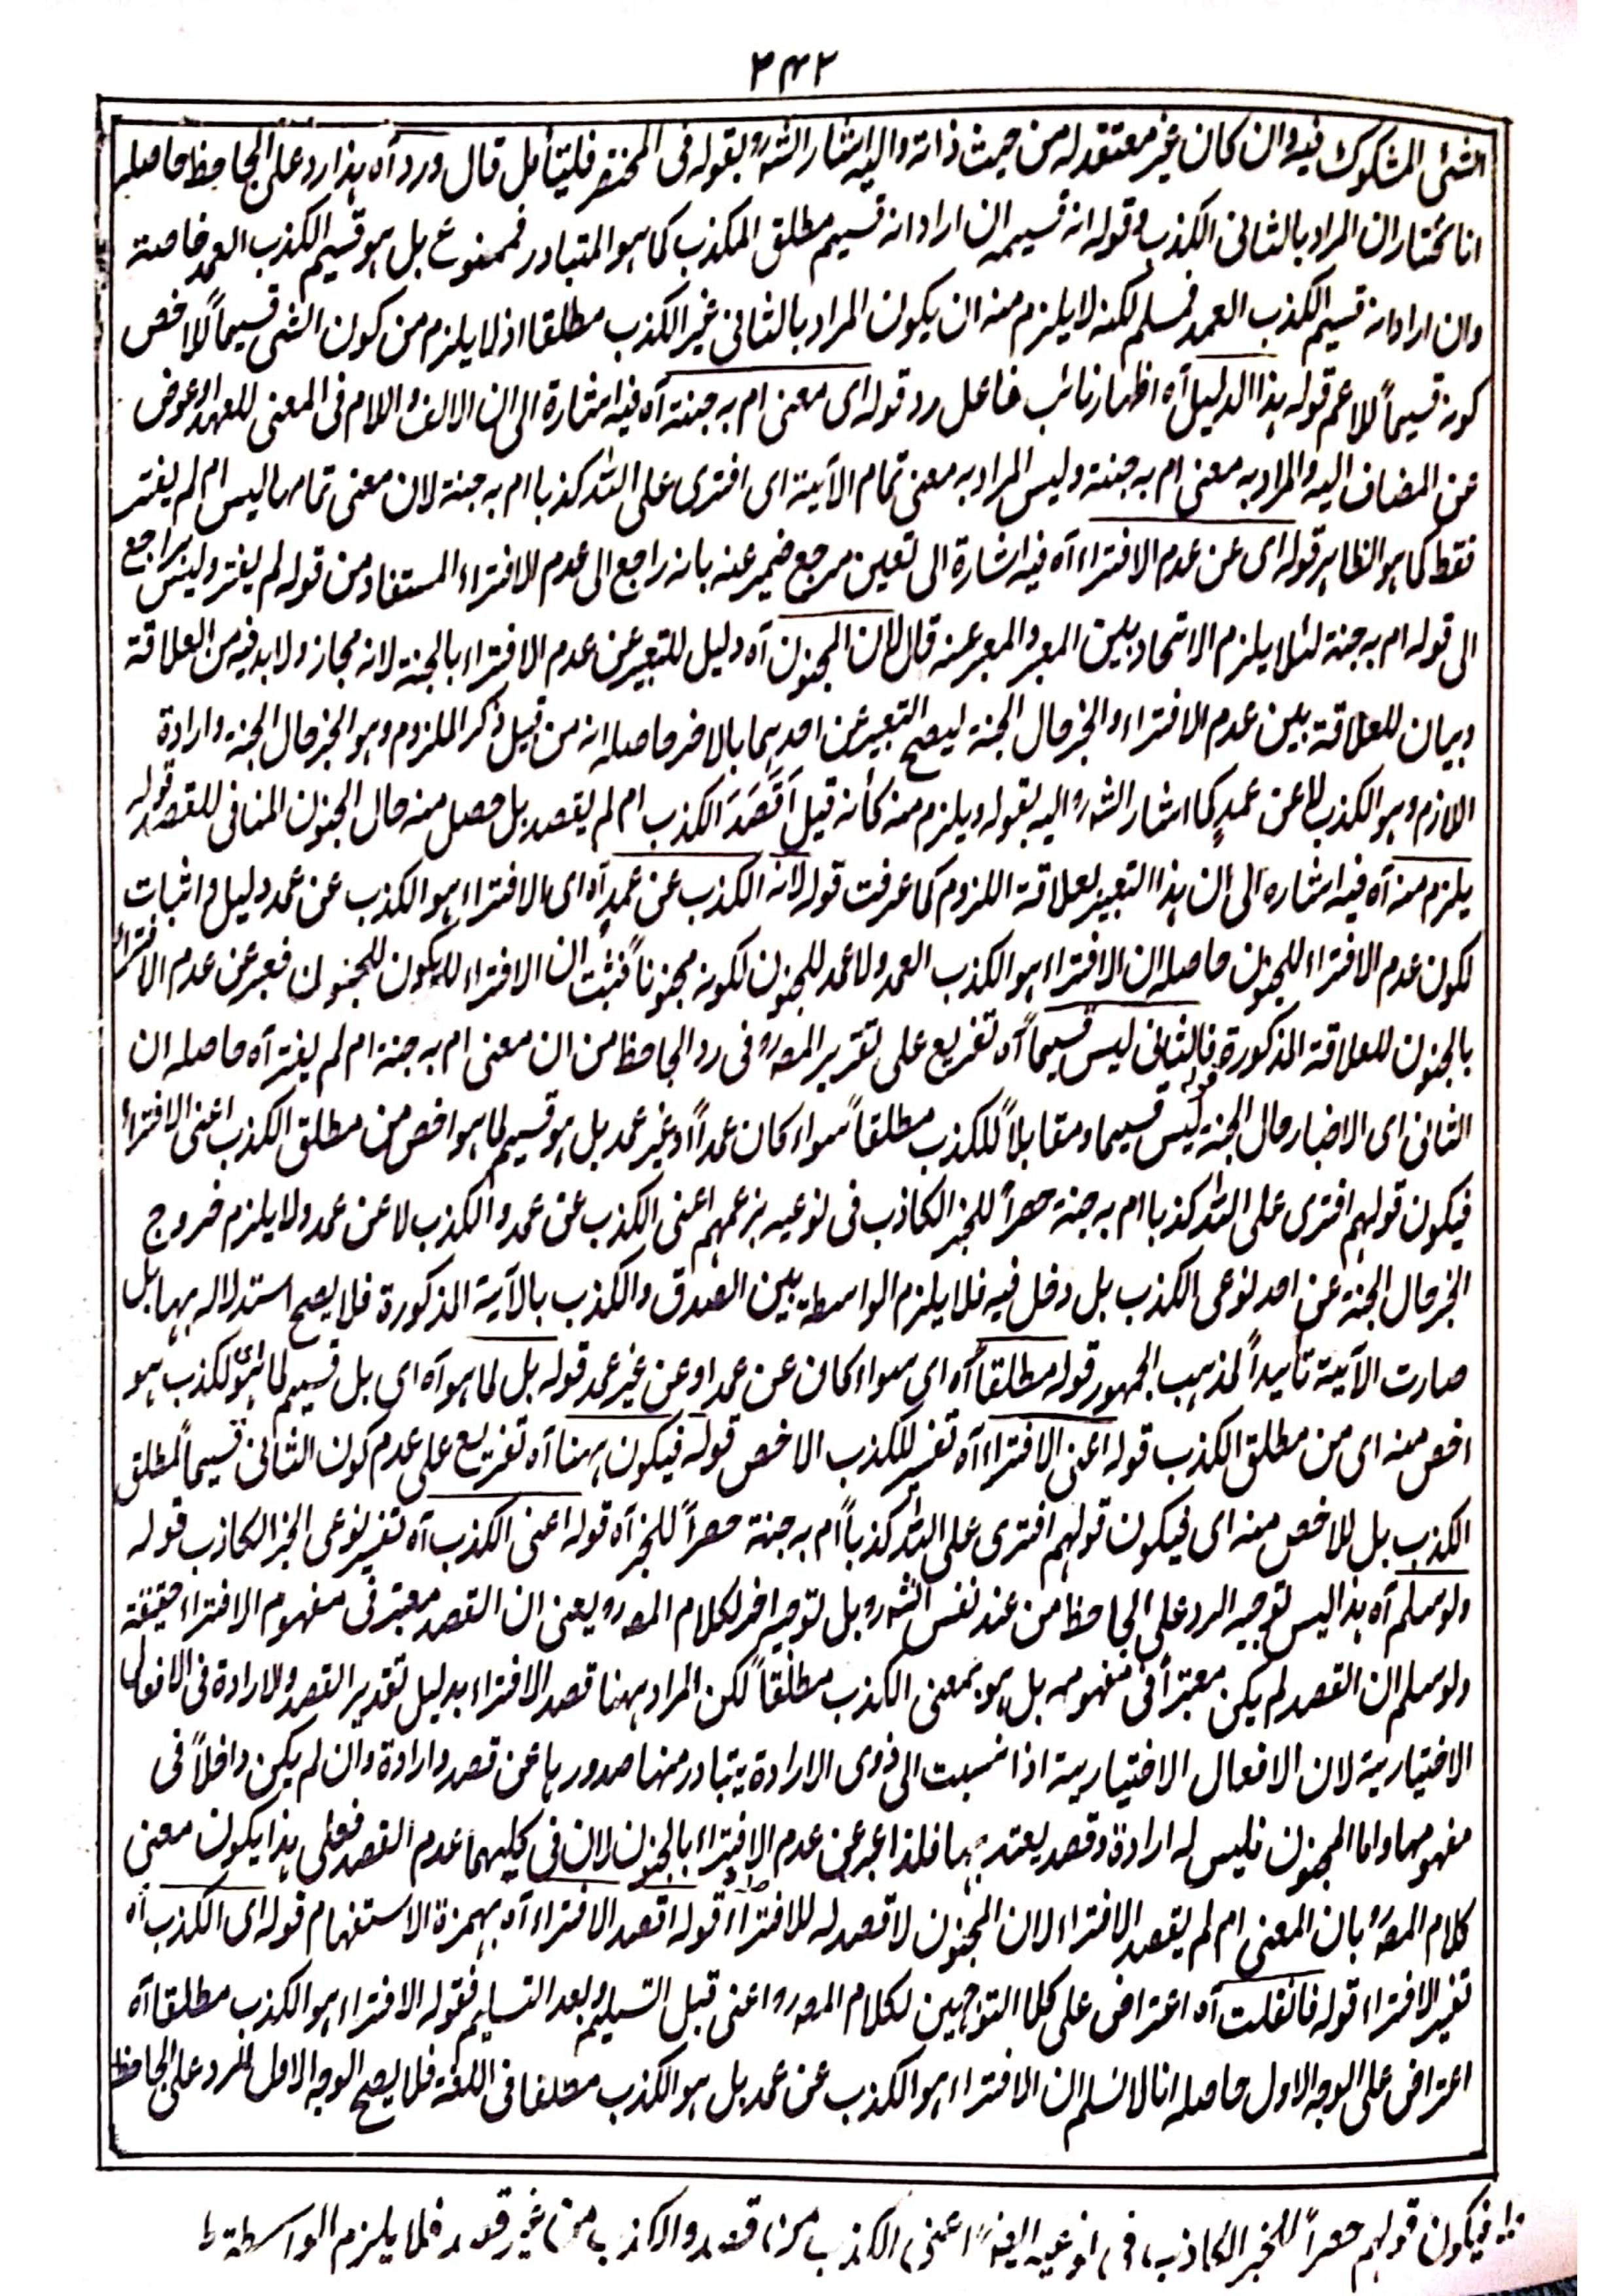 ۲۴۲
الشئی المشکوک فیہ وان کان غیر معتقد لہ من حیث ذاتہ والیہ اشار الشہ رو بقولہ فی المختصر فلیتأمل قال ورد آہ ہذا رد علی الجاحظ حاصلہ
انا نختار ان المراد بالثانی الکذب وقولہ انہ قسیمہ ان اراد انہ قسیم مطلق الکذب کما ہو المتبادر فممنوع بل ہو قسیم الکذب العمد خاصتہ
وان اراد انہ قسیم الکذب العمد فمسلم لکنہ لا یلزم منہ ان یکون المراد بالثانی غیر الکذب مطلقا اذ لا یلزم من کون الشئ قسیماً للاخص
کونہ قسیماً للاعم قولہ ہذا الدلیل آہ اظہار نائب فاعل رد قولہ ای معنی ام بہ جنتہ آہ فیہ اشارۃ الی ان الالف واللام فی المعنی للعہد او عوض
عن المضاف الیہ والمراد بہ معنی ام بہ جنتہ ولیس المراد بہ معنی تمام الآیتہ ای افتری علی اللہ کذبا ام بہ جنۃ لان معنی تمامہا لیس ام لم یفتر
فقط کما ہو الظاہر قولہ ای عن عدم الافتراء آہ فیہ اشارۃ الی تعیین مرجع ضمیر عنہ بانہ راجع الی عدم الافتراء المستفاد من قولہ لم یفتر ولیس براجع
الی قولہ ام بہ جنۃ لئلا یلزم الاتحاد بین المعبر والمعبر عنہ قال لان المجنون آہ دلیل للتعبیر عن عدم الافتراء بالجنۃ لانہ مجاز ولا بد فیہ من العلاقۃ
وبیان للعلاقۃ بین عدم الافتراء والخبر حال الجنۃ لیصح التعبیر عن احدہما بالاخر حاصلہ انہ من قبیل ذکر الملزوم وہو الخبر حال الجنۃ وارادۃ
اللازم وہو الکذب لا عن عمدٍ کما اشار الشہ رو الیہ بقولہ ویلزم منہ کأنہ قیل اَقَصَدَ الکذب ام لم یقصد بل حصل منہ حال الجنون المنافی للقصد قولہ
یلزم منہ آہ فیہ اشارہ الی ان ہذا التعبیر لعلاقۃ اللزوم کما عرفت قولہ لانہ الکذب عن عمدٍ آہ ای الافتراء ہو الکذب عن عمد دلیل واثبات
لکون عدم الافتراء للمجنون حاصلہ ان الافتراء ہو الکذب العمد ولا عمد للمجنون لکونہ مجنوناً فثبت ان الافتراء لا یکون للمجنون فعبر عن عدم الافتراء
بالجنون للعلاقۃ المذکورۃ قولہ فالثانی لیس قسیماً آہ تفریع علی تقریر المصہ رو فی رد الجاحظ من ان معنی ام بہ جنۃ ام لم یفتر آہ حاصلہ ان
الثانی ای الاخبار حال الجنۃ لیس قسیما ومقابلاً للکذب مطلقاً سواء کان عمداً او غیر عمد بل ہو قسیم لما ہو اخص من مطلق الکذب اعنی الافتراء
فیکون قولہم افتری علی اللہ کذبا ام بہ جنۃ حصراً للخبر الکاذب فی نوعیہ بزعمہم اعنی الکذب عن عمد والکذب لا عن عمد ولا یلزم خروج
الخبر حال الجنۃ عن احد نوعی الکذب بل دخل فیہ فلا یلزم الواسطۃ بین الصدق والکذب بالآیۃ المذکورۃ فلا یصح استدلالہ بہا بل
صارت الآیتہ تأییداً لمذہب الجمہور قولہ مطلقاً آہ ای سواء کان عن عمد او عن غیر عمد قولہ بل لما ہو آہ ای بل قسیم لما ای لکذب ہو
اخص منہ ای من مطلق الکذب قولہ اعنی الافتراء آہ تفسیر للکذب الاخص قولہ فیکون ہہنا آہ تفریع علی عدم کون الثانی قسیماً لمطلق
الکذب بل للاخص منہ ای فیکون قولہم افتری علی اللہ کذباً ام بہ جنۃ حصراً للخبر آہ قولہ اعنی الکذب آہ تفسیر نوعی الخبر الکاذب قولہ
ولو سلم آہ ہذا لیس توجیہ الرد علی الجاحظ من عند نفس الشہ رو بل توجیہ اخر لکلام المصہ رو یعنی ان القصد معتبر فی مفہوم الافتراء حقیقۃ
ولو سلم ان القصد لم یکن معتبراً فی مفہومہ بل ہو بمعنی الکذب مطلقاً لکن المراد ہہنا قصد الافتراء بدلیل تقدیر القصد والارادۃ فی الافعال
الاختیاریۃ لان الافعال الاختیاریۃ اذا نسبت الی ذوی الارادۃ یتبادر منہا صدورہا عن قصد وارادۃ وان لم یکن داخلاً فی
مفہومہا واما المجنون فلیس لہ ارادۃ وقصد یعتد بہا فلذا عبر عن عدم الافتراء بالجنون لان فی کلیہما عدم القصد فعلی ہذا یکون معنی
کلام المصہ رو بان المعنی ام لم یقصد الافتراء لان المجنون لا قصد لہ للافتراء قولہ اقصد الافتراء آہ بہمزۃ الاستفہام قولہ ای الکذب آہ
تفسیر الافتراء قولہ فان قلت آہ اعتراض علی کلا التوجیہین لکلام المصہ رو اعنی قبل التسلیم وبعد التسلیم فقولہ الافتراء ہو الکذب مطلقا آہ
اعتراض علی الوجہ الاول حاصلہ انا لا نسلم ان الافتراء ہو الکذب عن عمد بل ہو الکذب مطلقا فی اللغۃ فلا یصح الوجہ الاول للرد علی الجاحظ
فیکون قولہم حصراً للخبر الکاذب فی نوعیہ ایضاً اعنی الکذب من قصد والکذب من غیر قصد فلا یلزم الواسطۃ